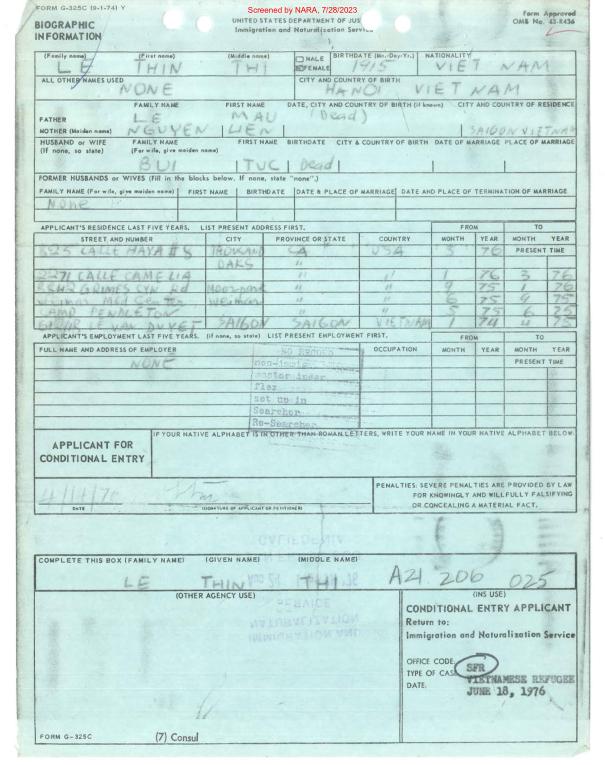 FORM G-325C (9-1-74) Y
Screened by NARA, 7/28/2023
Form Approved
OMB No. 43-R436
BIOGRAPHIC INFORMATION
UNITED STATES DEPARTMENT OF JUS
Immigration and Naturalization Service
(Family name) (First name) (Middle name) MALE FEMALE BIRTHDATE (Mo.-Day-Yr.) NATIONALITY
LE THIN THI 1915 VIET NAM
ALL OTHER NAMES USED CITY AND COUNTRY OF BIRTH
NONE HANOI VIET NAM
FAMILY NAME FIRST NAME DATE, CITY AND COUNTRY OF BIRTH (if known) CITY AND COUNTRY OF RESIDENCE
FATHER LE MAU (Dead)
MOTHER (Maiden name) NGUYEN LIEN SAIGON VIETNAM
HUSBAND or WIFE (If none, so state) FAMILY NAME (For wife, give maiden name) FIRST NAME BIRTHDATE CITY & COUNTRY OF BIRTH DATE OF MARRIAGE PLACE OF MARRIAGE
BUI TUC Dead
FORMER HUSBANDS or WIVES (Fill in the blocks below. If none, state "none".)
FAMILY NAME (For wife, give maiden name) FIRST NAME BIRTHDATE DATE & PLACE OF MARRIAGE DATE AND PLACE OF TERMINATION OF MARRIAGE
None
APPLICANT'S RESIDENCE LAST FIVE YEARS. LIST PRESENT ADDRESS FIRST. FROM TO
STREET AND NUMBER CITY PROVINCE OR STATE COUNTRY MONTH YEAR MONTH YEAR
CALLE HAYA THOUSAND OAKS CA USA 3 76 PRESENT TIME
2271 CALLE CAMELIA " " " 1 76 3 76
GRIMES CYN Rd Moorpark " " 9 75 1 76
Weimar Med Center Weimar " 6 75 9 75
CAMP PENDLETON 5 75 6 75
LE VAN DUYET SAIGON SAIGON VIETNAM 1 74 4 75
APPLICANT'S EMPLOYMENT LAST FIVE YEARS. (if none, so state) LIST PRESENT EMPLOYMENT FIRST. FROM TO
FULL NAME AND ADDRESS OF EMPLOYER OCCUPATION MONTH YEAR MONTH YEAR
NONE PRESENT TIME
NO RECORD
master index
flex
set up in
Searcher
Re-Searcher
APPLICANT FOR CONDITIONAL ENTRY
IF YOUR NATIVE ALPHABET IS IN OTHER THAN ROMAN LETTERS, WRITE YOUR NAME IN YOUR NATIVE ALPHABET BELOW:
DATE
(SIGNATURE OF APPLICANT OR PETITIONER)
PENALTIES: SEVERE PENALTIES ARE PROVIDED BY LAW
FOR KNOWINGLY AND WILLFULLY FALSIFYING
OR CONCEALING A MATERIAL FACT.
COMPLETE THIS BOX (FAMILY NAME) (GIVEN NAME) (MIDDLE NAME)
LE THIN THI A21 206 025
(OTHER AGENCY USE) (INS USE)
CONDITIONAL ENTRY APPLICANT
Return to:
Immigration and Naturalization Service
OFFICE CODE SFR
TYPE OF CASE VIETNAMESE REFUGEE
DATE. JUNE 18, 1976
FORM G-325C
(7) Consul